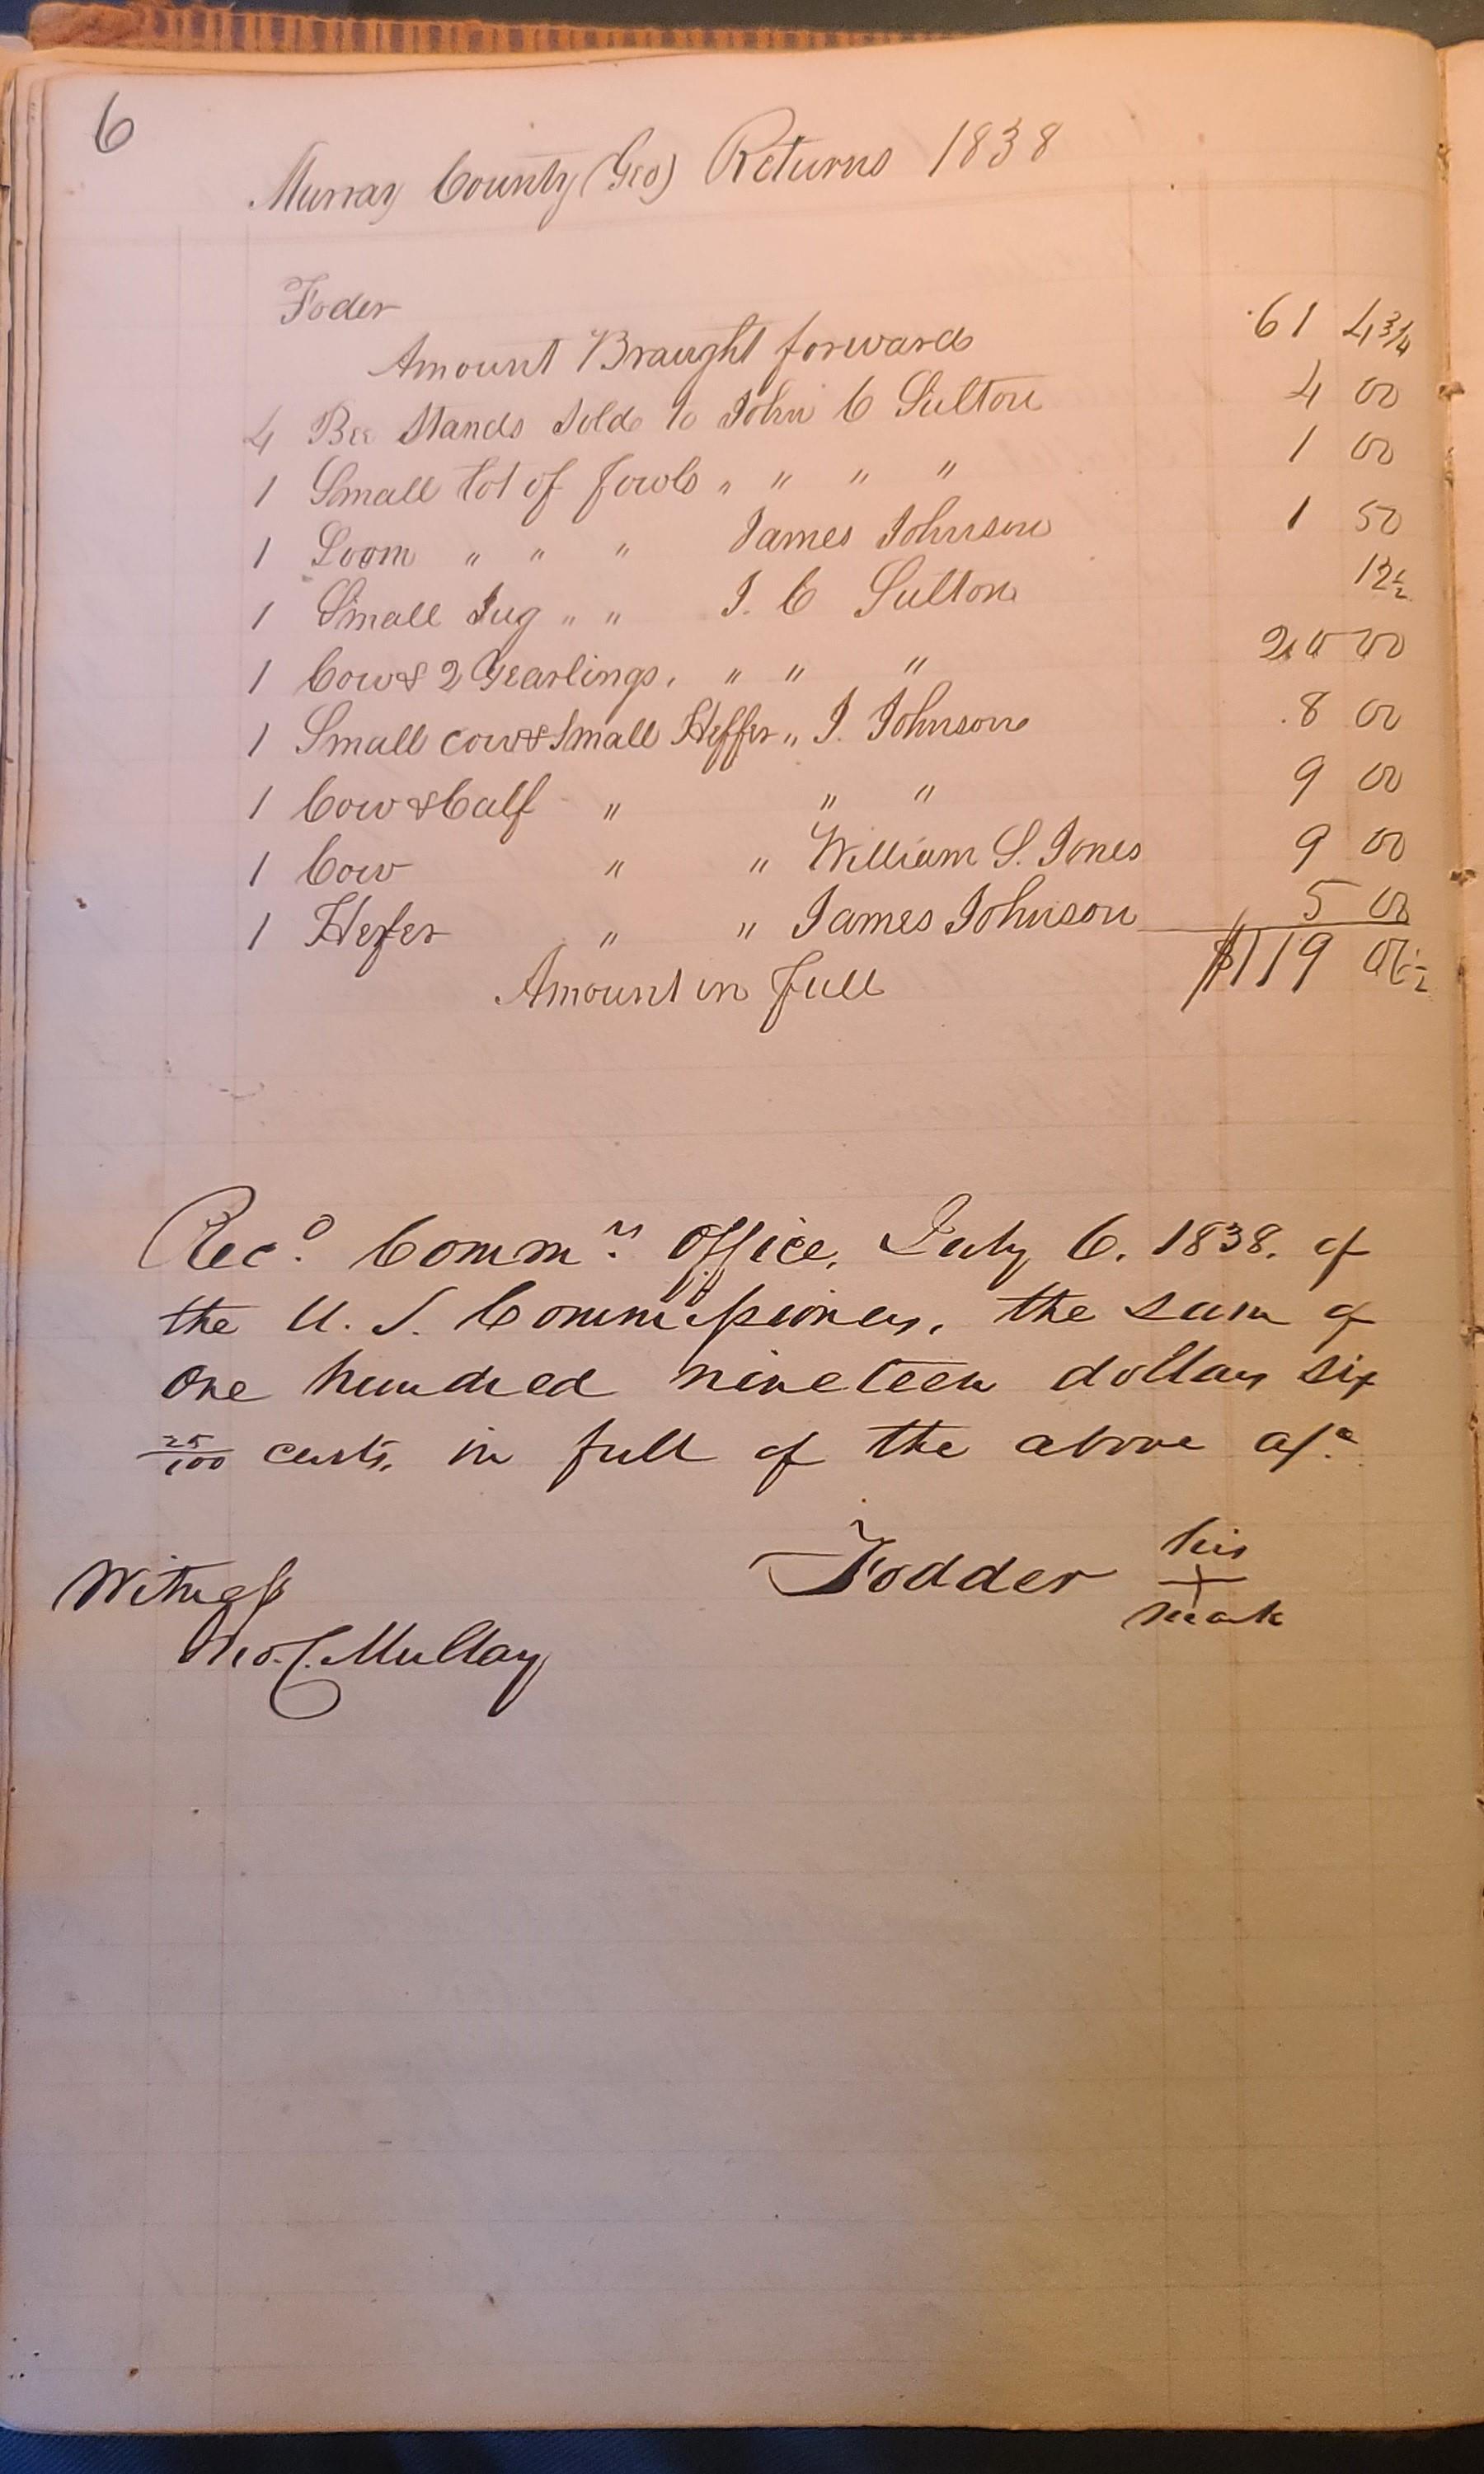 6
Murray County (Geo) Returns 1838
Foder
Amount Braught forward 61 4 3/4
4 Bee Stands Sold to John C Sutton 4 00
1 Small lot of fowls " " " " 1 00
1 Loom " " " James Johnson 1 50
1 Small Jug " " J. C Sutton 12 1/2
1 Cow & 2 Yearlings, " " " 20 00
1 Small cow & Small Heffer " J. Johnson 8 00
1 Cow & Calf " " " 9 00
1 Cow " " William S. Jones 9 00
1 Hefer " " James Johnson 5 00
Amount in full $119 06 1/2
Recd. Commrs. Office, July 6. 1838. of
the U. S. Commissioners, the sum of
One hundred nineteen dollars six
25/100 cents, in full of the above a/c.
Fodder his
Witness +
mark
C. Mullay